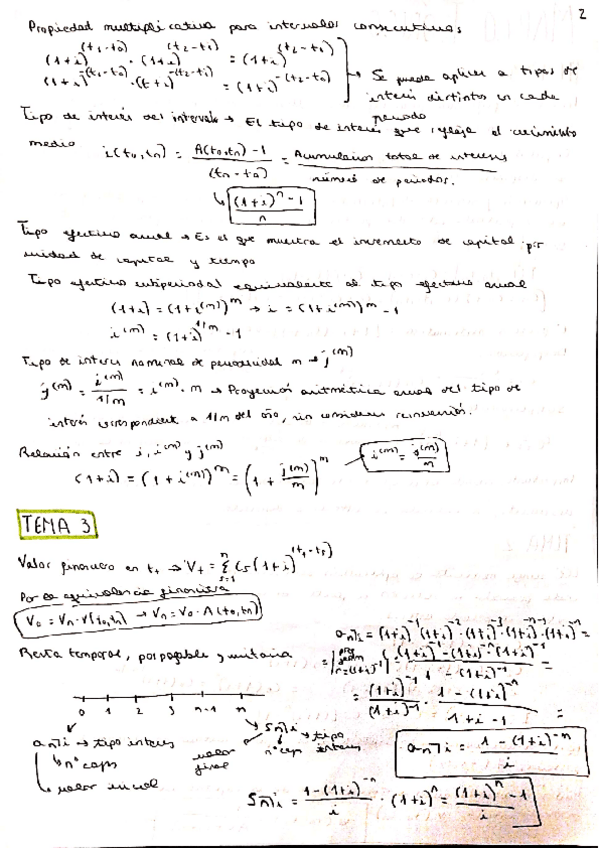 2
Propiedad multiplicativa para intervalos consecutivos
(1+i)^(t₁-t₀) · (1+i)^(t₂-t₁) = (1+i)^(t₂-t₀)
(1+i)^-(t₁-t₀) · (t+i)^-(t₂-t₁) = (1+i)^-(t₂-t₀)
→ Se puede aplicar a tipos de
interés distintos en cada
periodo
Tipo de interés del intervalo → El tipo de interés que refleja el crecimiento
medio
i(t₀,tₙ) = A(t₀,tₙ) - 1 / (tₙ - t₀) = Acumulación total de intereses / número de periodos.
↳ (1+i)^n - 1 / n
Tipo efectivo anual → Es el que muestra el incremento de capital por
unidad de capital y tiempo
Tipo efectivo subperiodal equivalente al tipo efectivo anual
(1+i) = (1+i^(m))^m → i = (1+i^(m))^m - 1
i^(m) = (1+i)^1/m - 1
Tipo de interes nominal de periodicidad m → j^(m)
j^(m) = i^(m) / 1/m = i^(m) · m → Proyección aritmética anual del tipo de
interés correspondiente a 1/m del año, sin considerar reinversión.
Relación entre i, i^(m) y j^(m)
(1+i) = (1+i^(m))^m = (1 + j^(m)/m)^m
i^(m) = j^(m)/m
TEMA 3
Valor financiero en t₊ → V₊ = Σ
Por la equivalencia financiera
V₀ = Vₙ · V(t₀,tₙ) → Vₙ = V₀ · A(t₀,tₙ)
Renta temporal, pospagable y unitaria
0 1 2 3 n-1 n
aₙ̅|i → tipo interes
↳ nº caps
↳ valor inicial
Sₙ̅|i → tipo interes
nº cap
valor final
aₙ̅|i = (1+i)^-1 (1+i)^-2 · (1+i)^-3 · (1+i)^-n-1 · (1+i)^-n =
= (1+i)^-1 - (1+i)^-n (1+i)^-1 / 1 - (1+i)^-1 =
= (1+i)^-1 / (1+i)^-1 · 1 - (1+i)^-n / 1+i-1 =
aₙ̅|i = 1 - (1+i)^-n / i
Sₙ̅|i = 1-(1+i)^-n / i · (1+i)^n = (1+i)^n - 1 / i